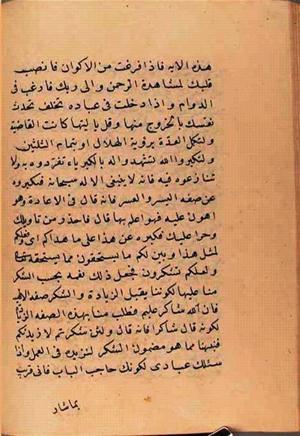 هذه الآية فاذا فرغت من الاكوان فانصب
قلبك لمشاهدة الرحمن والى ربك فارغب في
الدوام واذا دخلت في عبادة
نفسك بالخروج منها وقل يا ليتها كانت القاضية
ولتكمل العدة برؤية الهلال او بتمام الثلثين
ولتكبروا الله تشهدوا له بالكبرياء تفردوه به ولا
تنازعوه فيه فانه لا ينبغي الا له سبحانه فتكبروه
عن صفة اليسر والعسر فانه قال في الاعادة وهو
اهون عليه فهو اعلم بما قال فاحذر من تاويلك
عليك فتكبره عن هذا على ما هداكم اي وفقكم
لمثل هذا وبين لكم ما تستحقونه مما يستحقه تعالى
ولعلكم تشكرون فجعل ذلك نعمة يجب الشكر
منا عليها لكوننا يقبل الزيادة والشكر صفة الهية
فان الله شاكر عليم فطلب منا بهذه الصفة الزيادة
لكونه قال شاكرا فانه قال ولئن شكرتم لازيدنكم
فنبهنا بما هو مضمون الشكر لنزيده في العمل واذا
سئلك عبادي لكونك حاجب الباب فاني قريب
بما شار